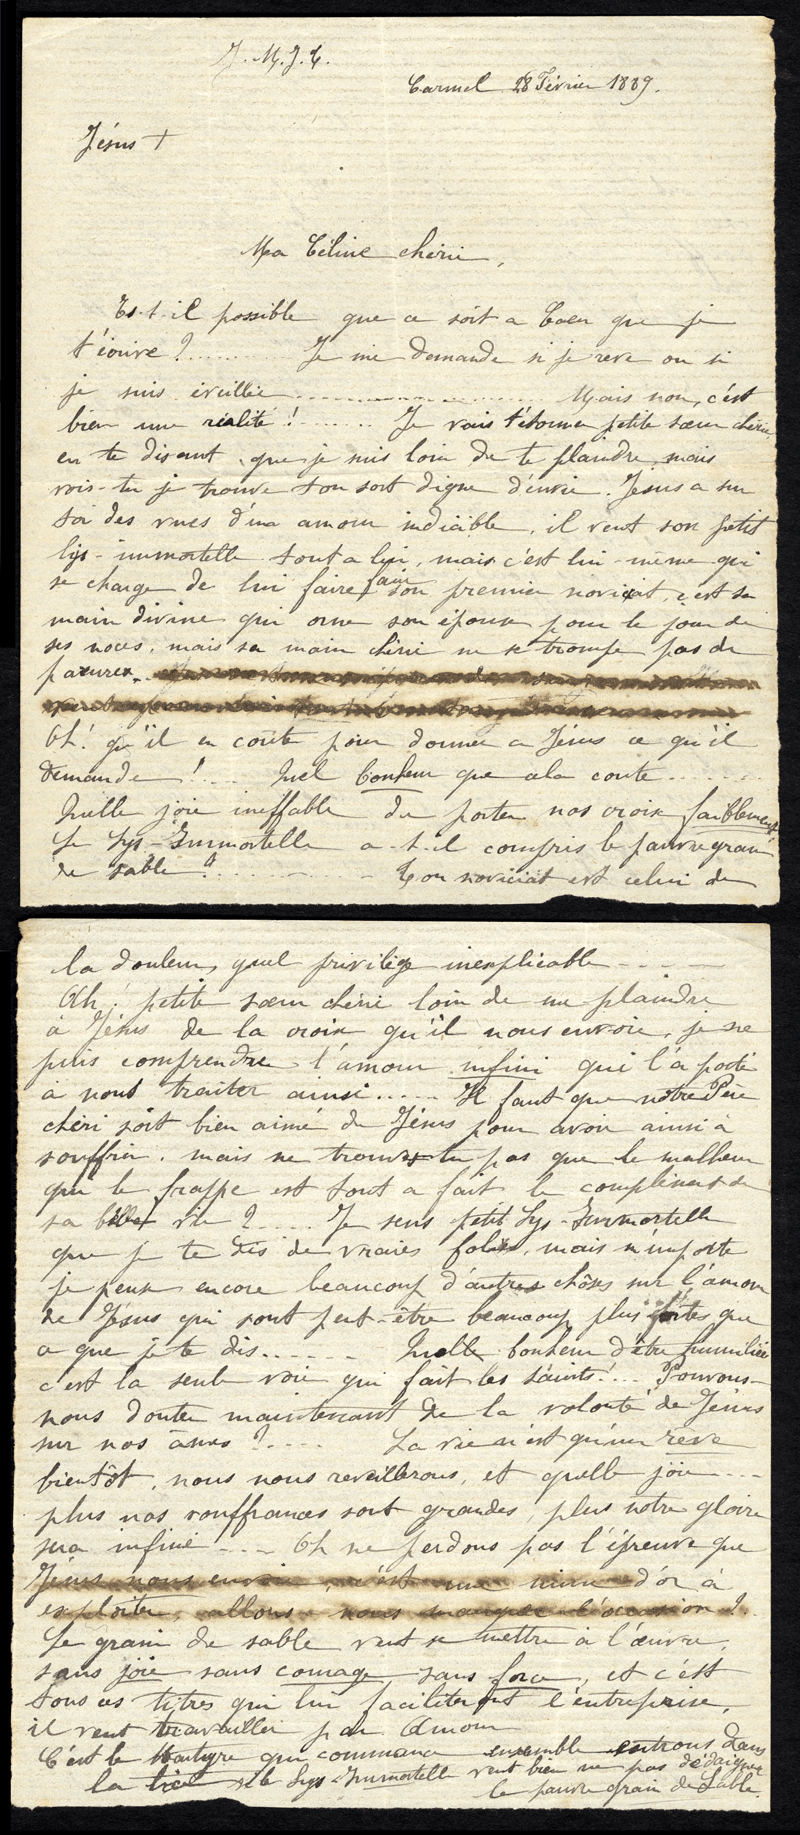 J. M. J. T.
Carmel 28 Février 1889.
Jésus +
Ma Céline chérie,
Es-t-il possible que ce soit a Caen que je
t'écrive ?......... Je me demande si je reve ou si
je suis éveillée .................... Mais non, c'est
bien une réalité !....... Je vais t'étonner petite sœur chérie
en te disant que je suis loin de te plaindre, mais
vois-tu je trouve ton sort digne d'envie. Jésus a sur
toi des vues d'un amour indicible, il veut son petit
lys-immortelle tout a lui, mais c'est lui-même qui
se charge de lui faire faire son premier noviciat, c'est sa
main divine qui orne son épouse pour le jour de
ses noces, mais sa main chérie ne se trompe pas de
parures.
Oh! qu'il en coute pour donner a Jésus ce qu'il
demande !... Quel bonheur que cela coute........
Quelle joie ineffable de porter nos croix faiblement
Le Lys-Immortelle a-t-il compris le pauvre grain
de sable ?............ Ton noviciat est celui de
la douleur, quel privilège inexplicable - - - -
Ah! petite sœur chérie loin de me plaindre
à Jésus de la croix qu'il nous envoie, je ne
puis comprendre l'amour infini qui l'a porté
à nous traiter ainsi...... Il faut que notre Père
chéri soit bien aimé de Jésus pour avoir ainsi à
souffrir, mais ne trouves tu pas que le malheur
qui le frappe est tout a fait le complément de
sa belle vie ?.... Je sens petit Lys-Immortelle
que je te dis de vraies folies, mais n'importe
je pense encore beaucoup d'autres chôses sur l'amour
de Jésus qui sont peut-être beaucoup plus fortes que
ce que je te dis.... Quelle bonheur d'être humiliée
c'est la seule voie qui fait les saints!... Pouvons-
nous douter maintenant de la volonté de Jésus
sur nos âmes ?.... La vie n'est qu'un rêve
bientôt, nous nous reveillerons, et quelle joie ...
plus nos souffrances sont grandes, plus notre gloire
sera infinie.... Oh ne perdons pas l'épreuve que
Jésus nous envoie, c'est une mine d'or à
exploiter, allons-nous manquer l'occasion ?.
Le grain de sable veut se mettre à l'œuvre,
sans joie sans courage sans force, et c'est
tous ces titres qui lui faciliteront l'entreprise,
il veut travailler par Amour
C'est le Martyre qui commence ensemble entrons dans
la lice si le Lys-Immortelle veut bien ne pas dédaigner
le pauvre grain de Sable.